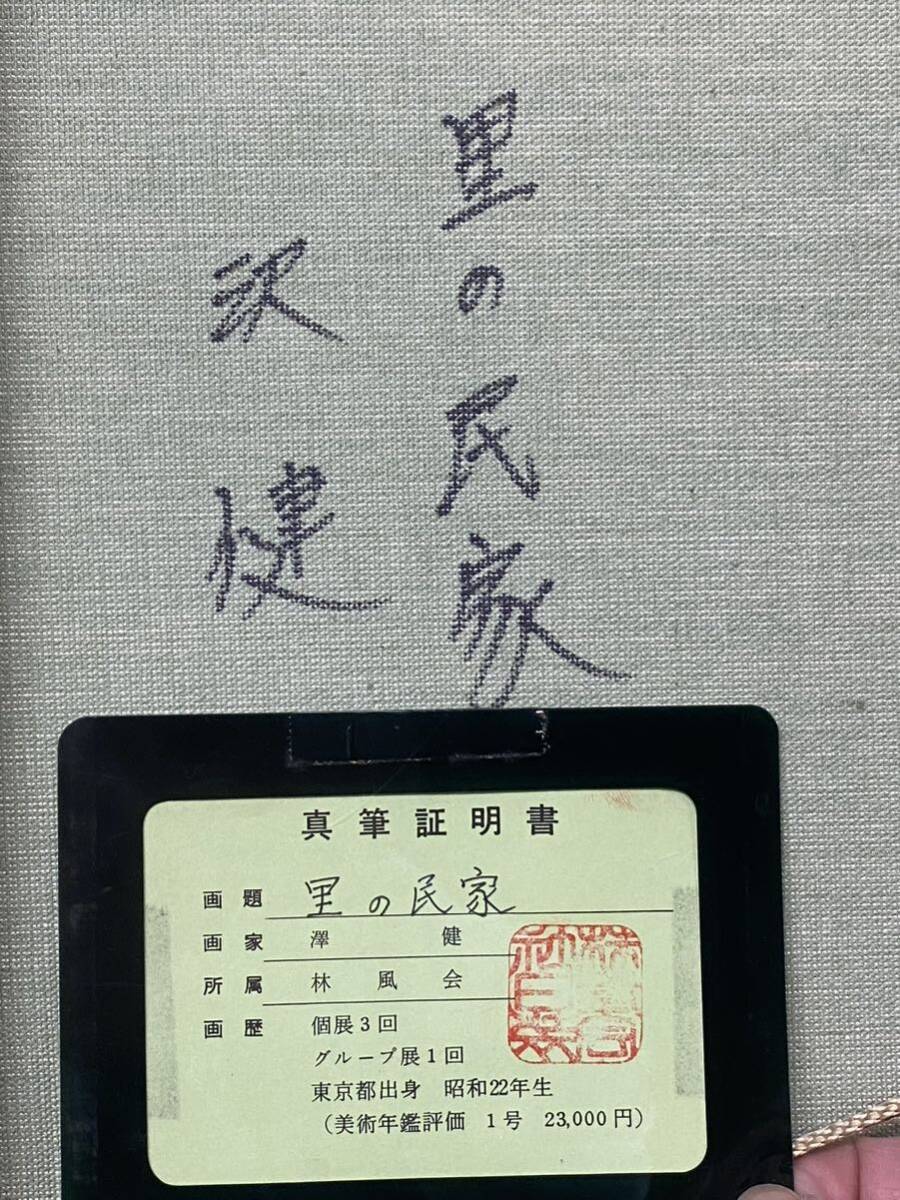 里の民家
沢健
真筆証明書
画題 里の民家
画家 澤 健
所属 林風会
画歴 個展3回
グループ展1回
東京都出身 昭和22年生
(美術年鑑評価 1号 23,000円)